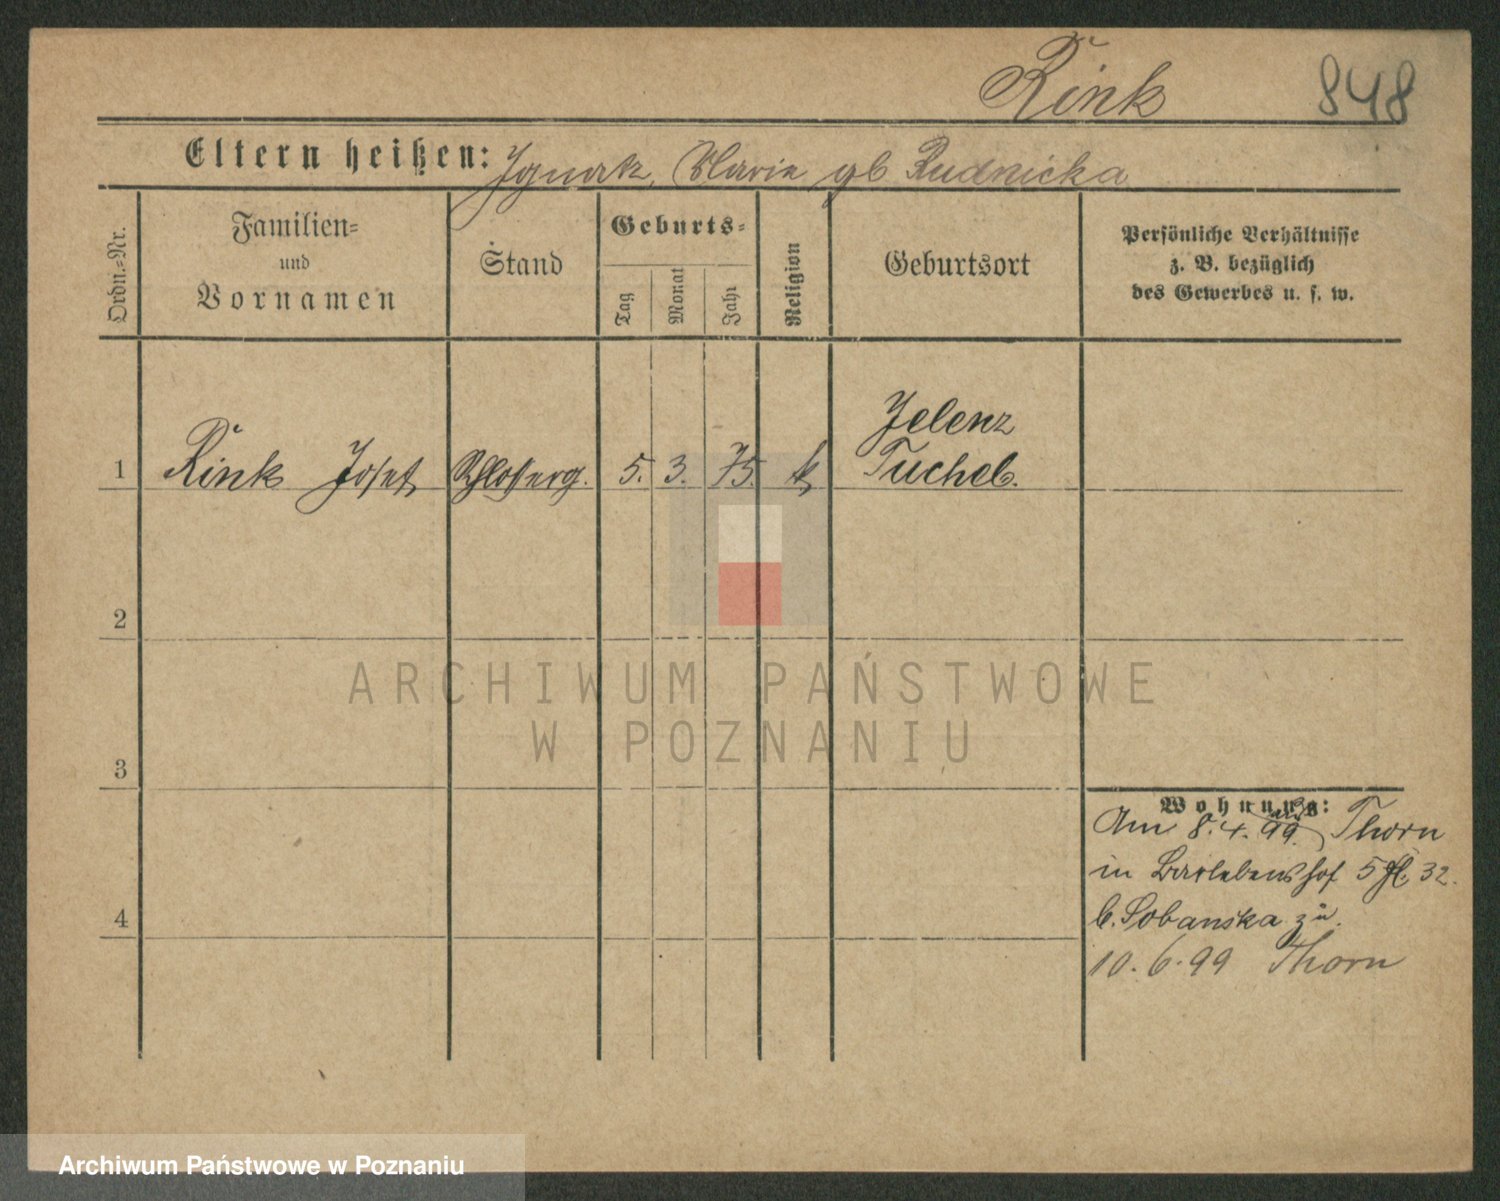 Rink 848
Eltern heißen: Ignatz, Marie gb Rudnicka
Ordn.=Nr.
Familien=
und
Vornamen
Stand
Geburts=
Tag
Monat
Jahr
Religion
Geburtsort
Persönliche Verhältnisse
z. B. bezüglich
des Gewerbes u. s. w.
Jelenz
1 Rink Josef Schlosserg. 5. 3. 75. k Tuchel.
2
3
4
Wohnung:
Am 8.4.99. aus Thorn
in Bartlebenshof 5 32.
b. Sobanska zu.
10.6.99 Thorn
ARCHIWUM PAŃSTWOWE
W POZNANIU
Archiwum Państwowe w Poznaniu